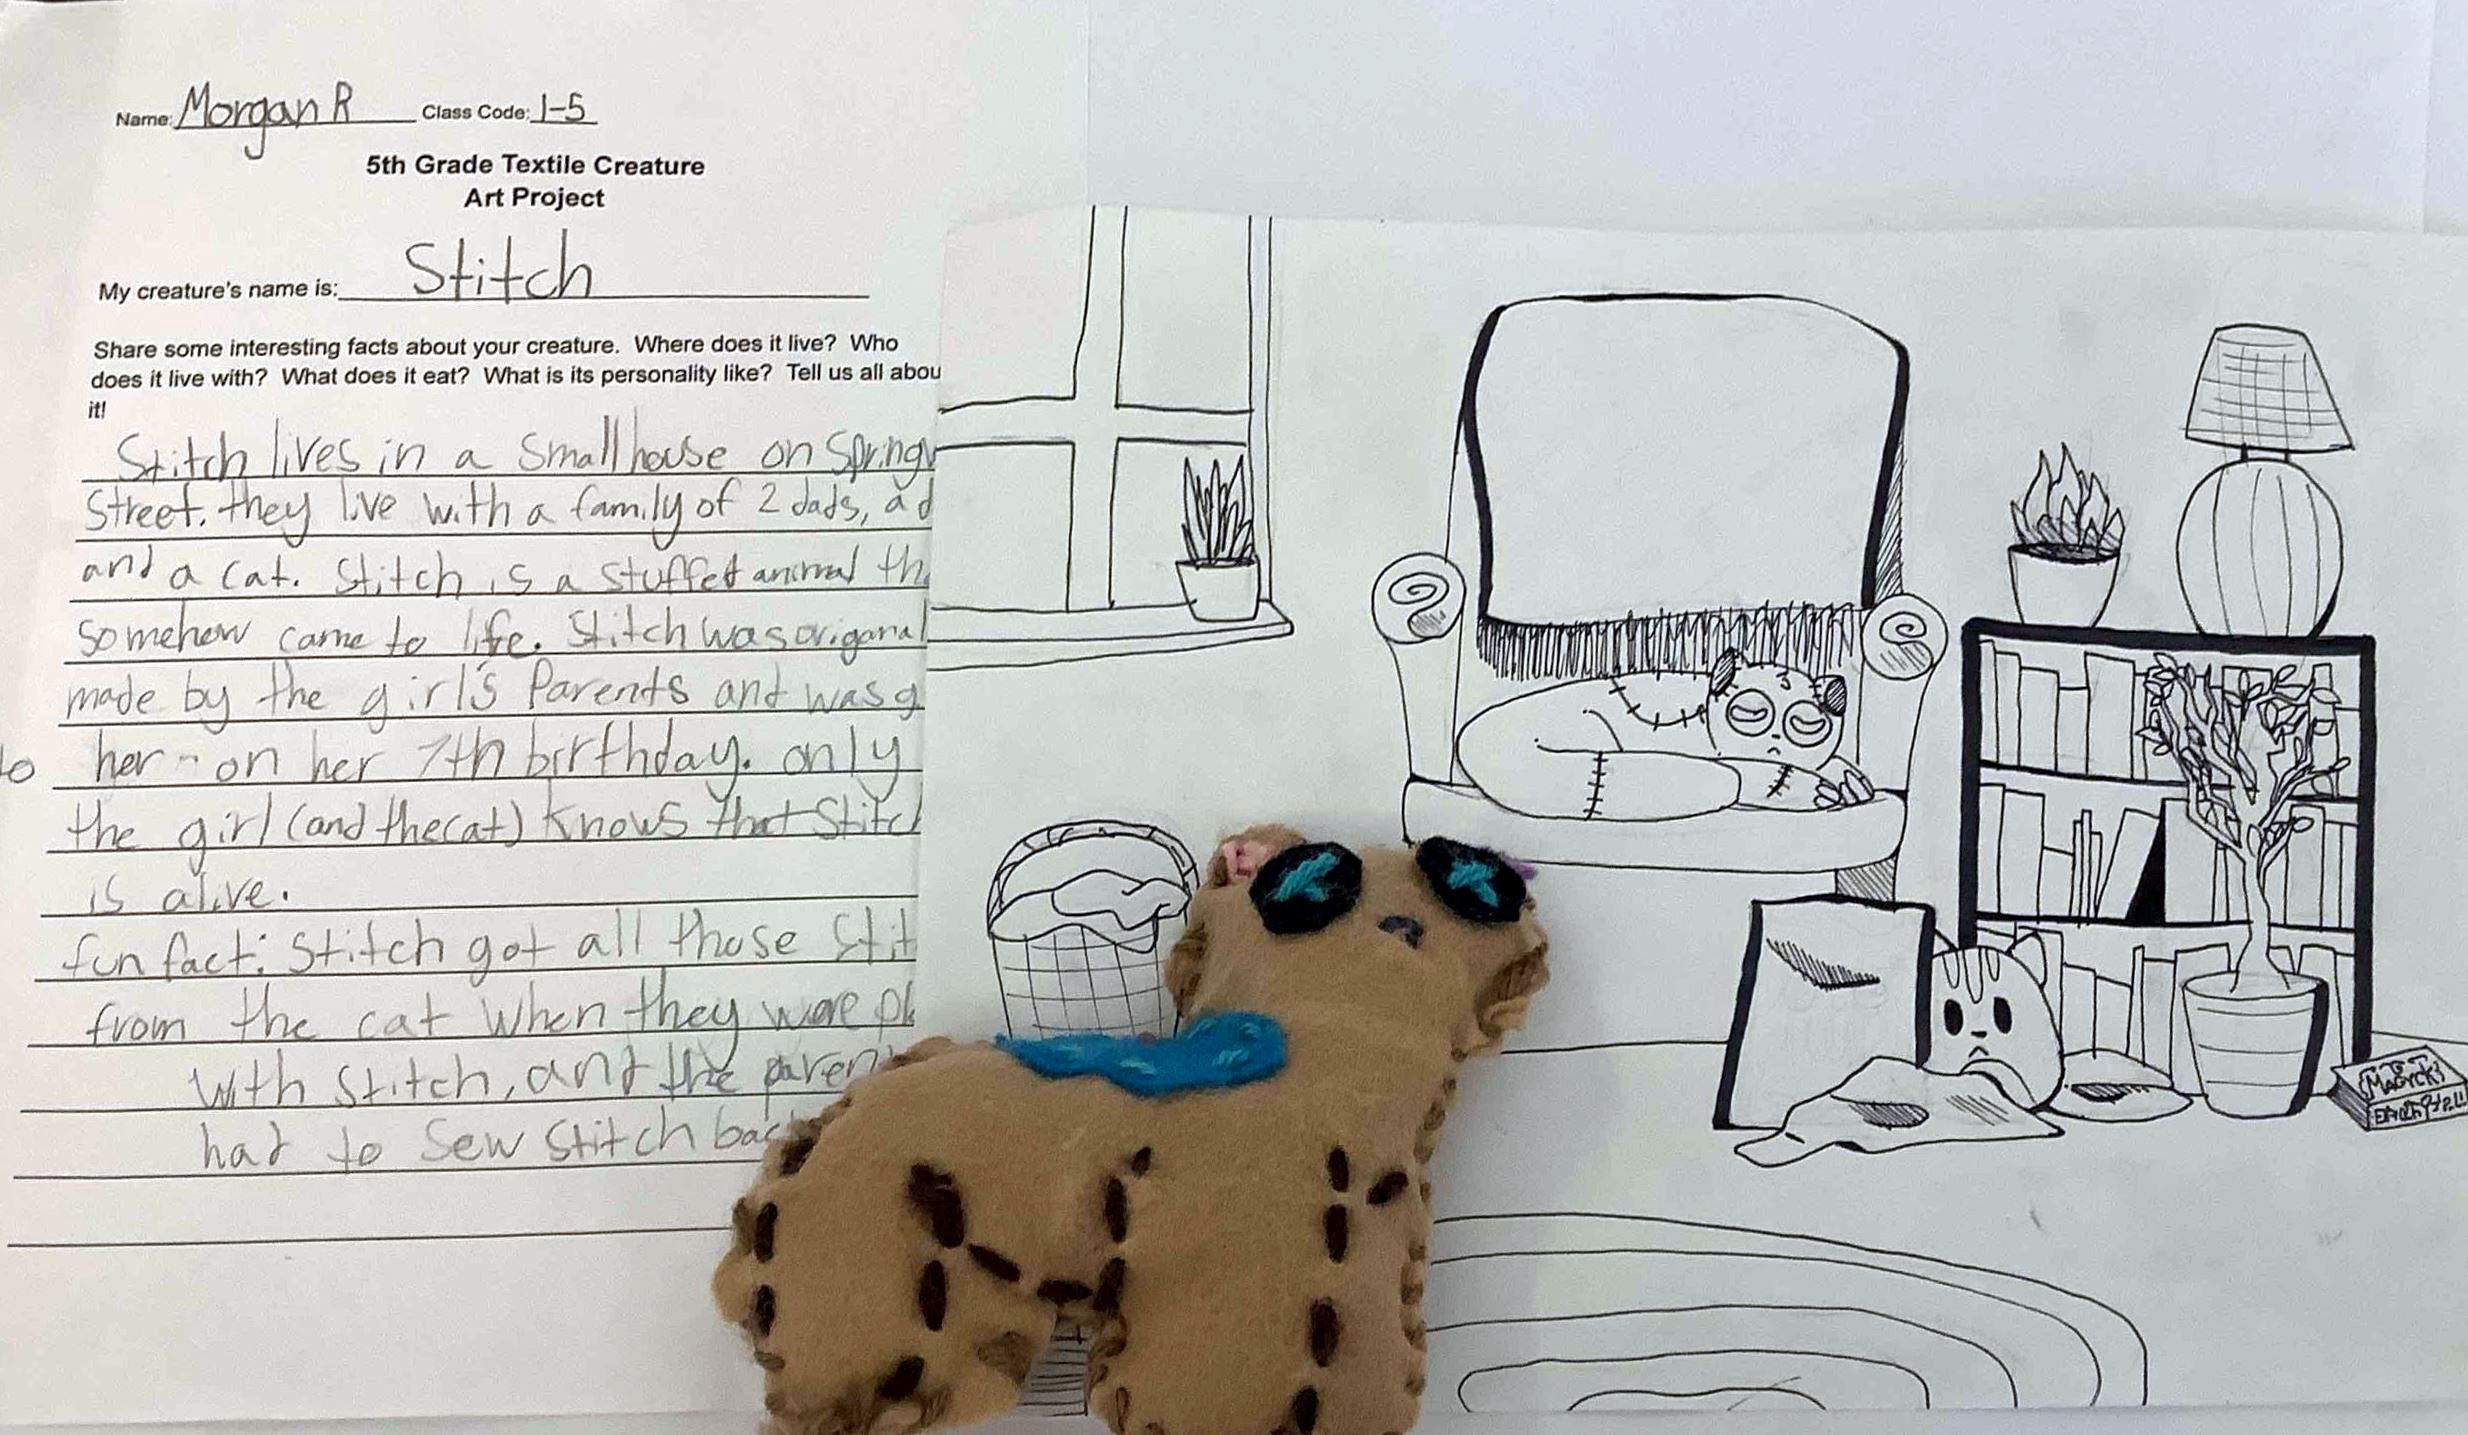 Name: Morgan R Class Code: 1-5
5th Grade Textile Creature
Art Project
My creature's name is: Stitch
Share some interesting facts about your creature. Where does it live? Who
does it live with? What does it eat? What is its personality like? Tell us all abou
it!
Stitch lives in a small house on Spring
Street. they live with a family of 2 dads, a d
and a cat. Stitch is a stuffed animal th
somehow came to life. Stitch was origanal
made by the girl's Parents and was g
to her - on her 7th birthday. only
the girl (and the cat) knows that Stitch
is alive.
fun fact: Stitch got all those Stit
from the cat when they were pl
with Stitch, and the paren
had to Sew Stitch bac
MAGYCK